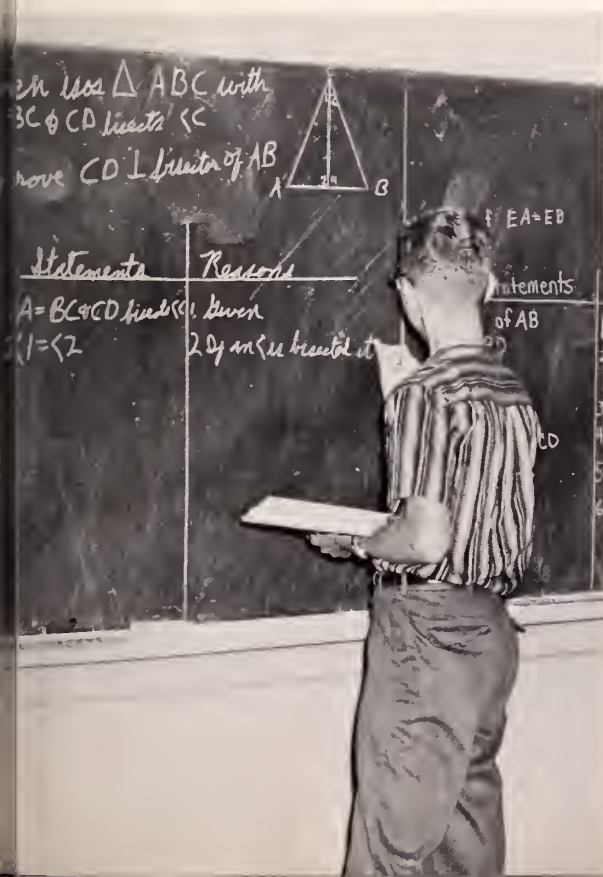 en isos △ ABC with
BC & CD bisects <C
rove CD ⊥ bisector of AB
A B
Statements Reasons
A = BC & CD bisects <C 1. Given
<1 = <2 2 If an < is bisected it
EA = EB
tatements
of AB
CD